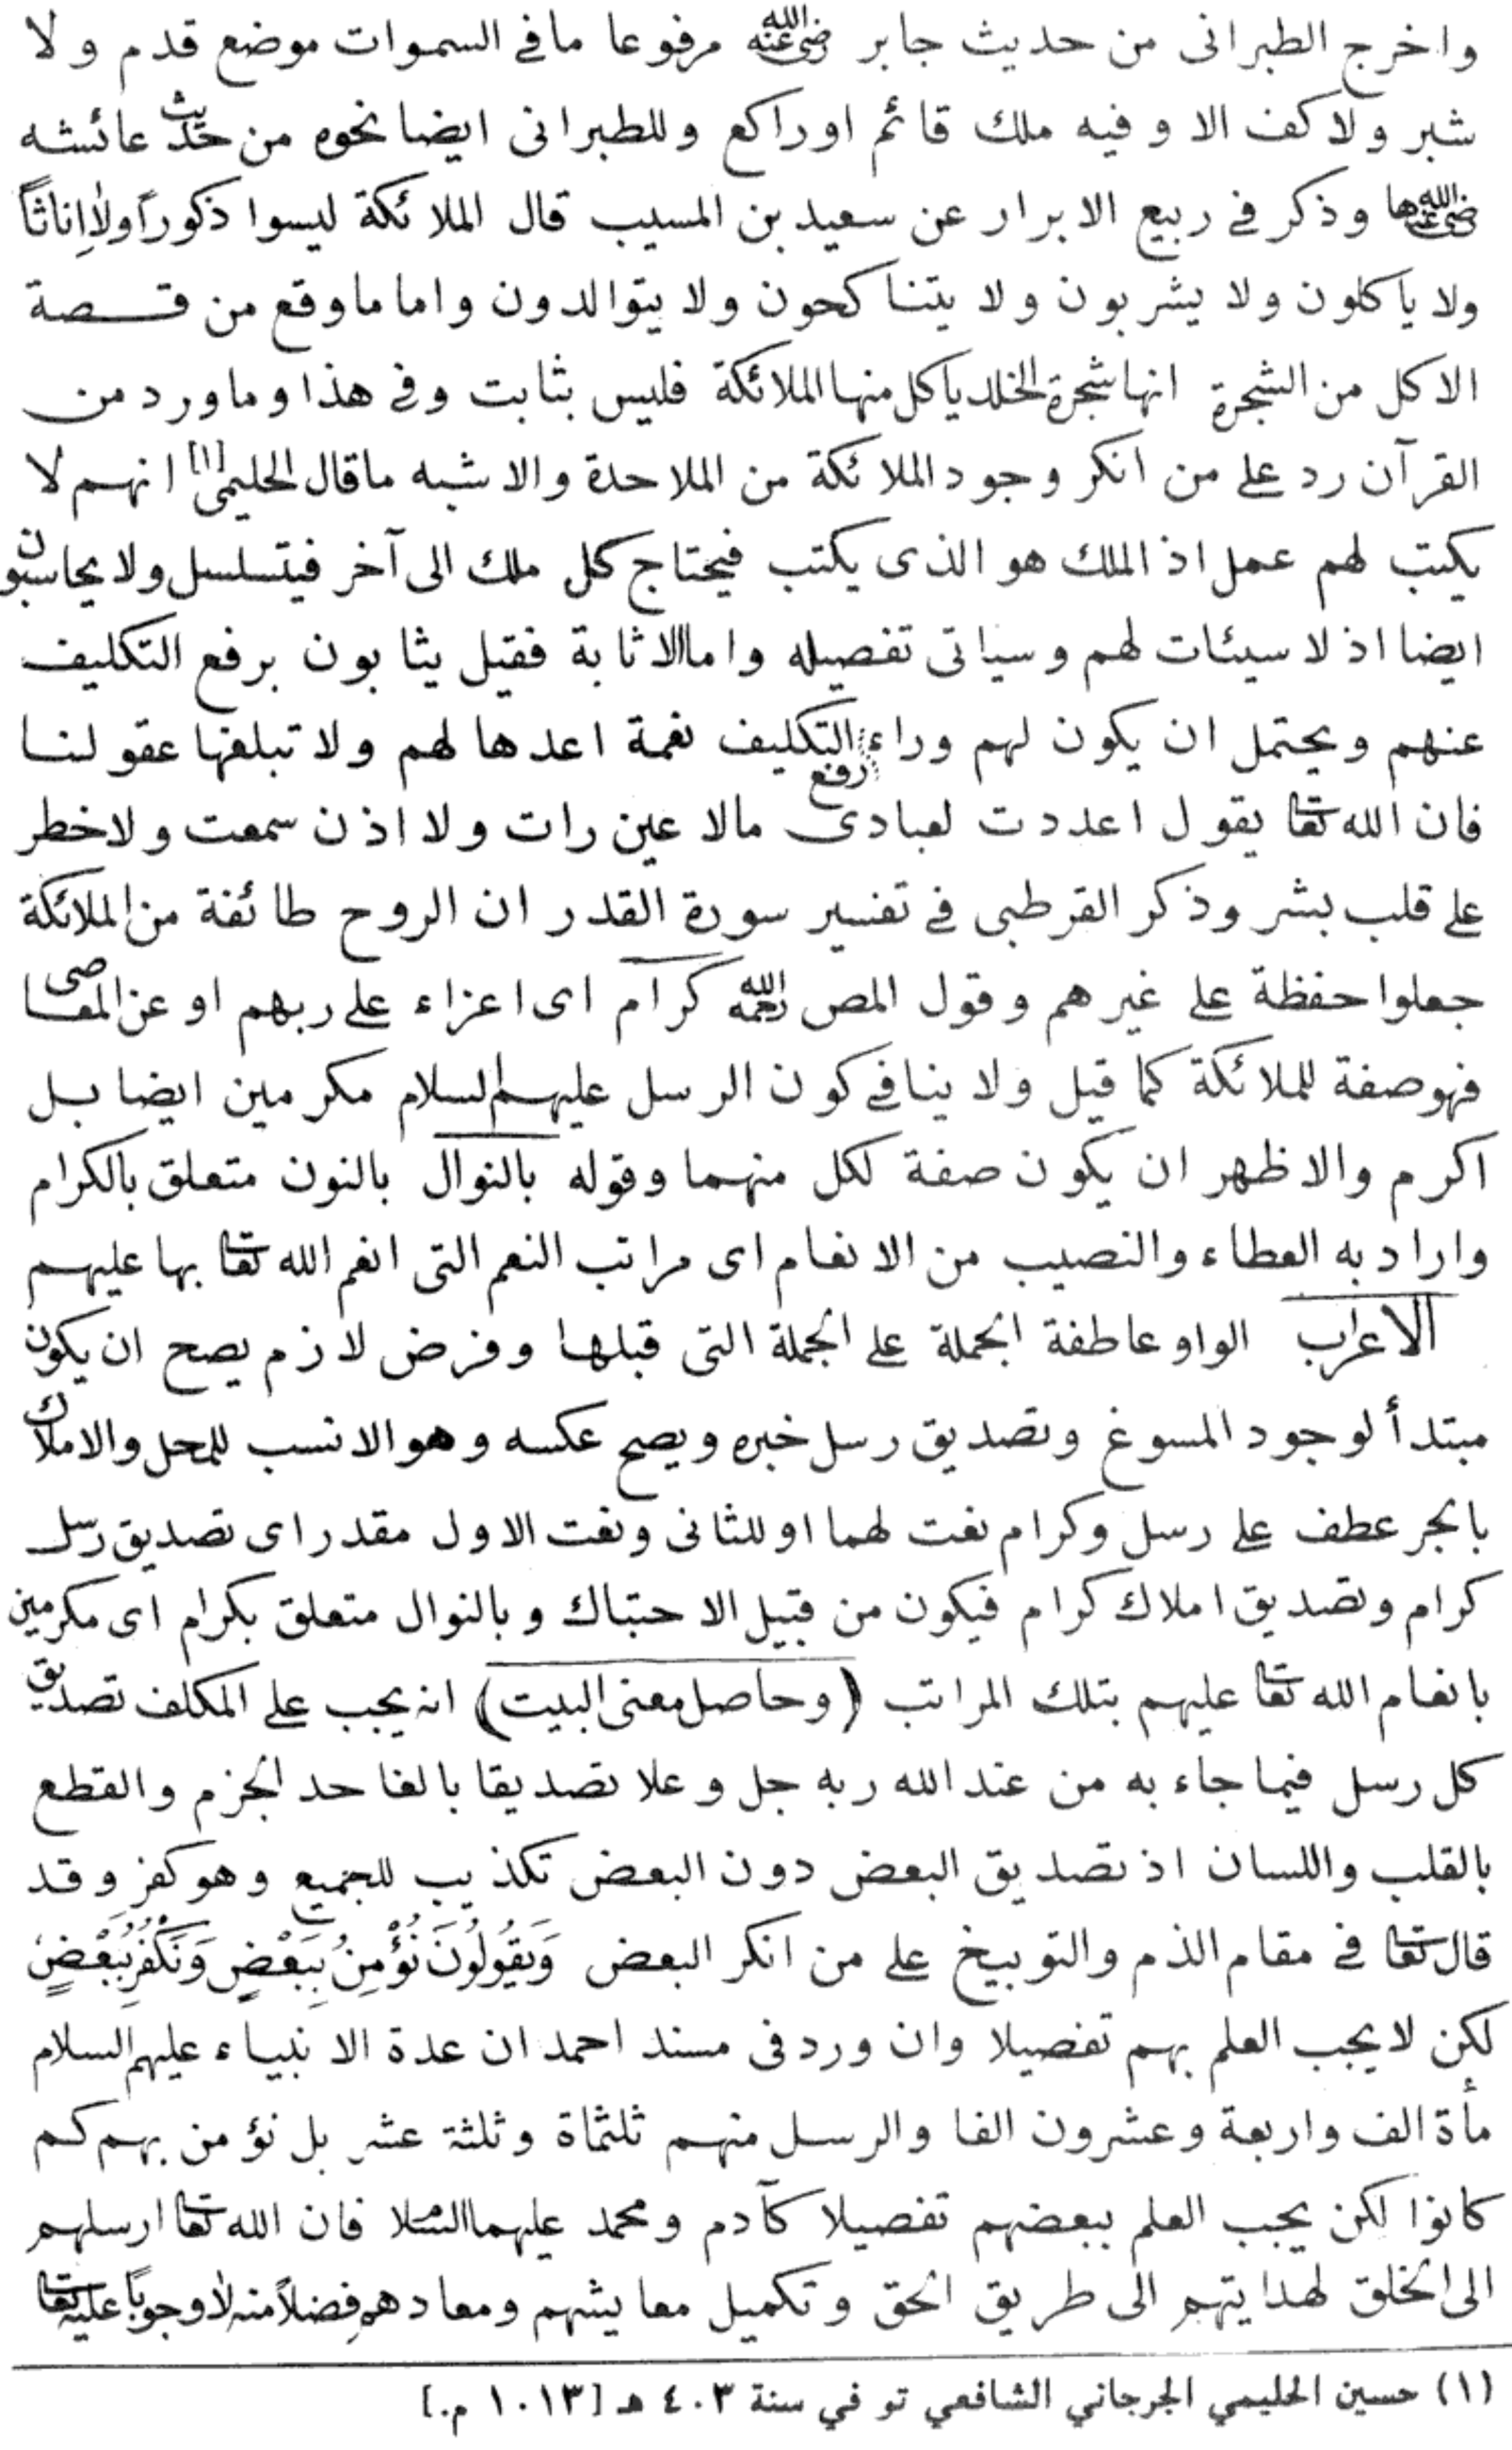 واخرج الطبرانى من حديث جابر رضي الله عنه مرفوعا ما فى السموات موضع قدم ولا
شبر ولا كف الا وفيه ملك قائم او راكع وللطبرانى ايضا نحوه من حديث عائشه
رضي الله عنها وذكر فى ربيع الابرار عن سعيد بن المسيب قال الملائكة ليسوا ذكوراً ولا اِناثاً
ولا ياكلون ولا يشربون ولا يتناكحون ولا يتوالدون واما ما وقع من قصة
الاكل من الشجرة انها شجرة الخلد ياكل منها الملائكة فليس بثابت وفى هذا وما ورد من
القرآن رد على من انكر وجود الملائكة من الملاحدة والاشبه ما قال الحليمى[١] انهم لا
يكتب لهم عمل اذ الملك هو الذى يكتب فيحتاج كل ملك الى آخر فيتسلسل ولا يحاسبون
ايضا اذ لا سيئات لهم وسياتى تفصيله واما الاثابة فقيل يثابون برفع التكليف
عنهم ويحتمل ان يكون لهم وراء رفع التكليف نعمة اعدها لهم ولا تبلغها عقولنا
فان الله تعا يقول اعددت لعبادى مالا عين رات ولا اذن سمعت ولا خطر
على قلب بشر وذكر القرطبى فى تفسير سورة القدر ان الروح طائفة من الملائكة
جعلوا حفظة على غيرهم وقول المص رحمه الله كرام اى اعزاء على ربهم او عن المعاصى
فهو صفة للملائكة كما قيل ولا ينافى كون الرسل عليهم السلام مكرمين ايضا بل
اكرم والاظهر ان يكون صفة لكل منهما وقوله بالنوال بالنون متعلق بالكرام
واراد به العطاء والنصيب من الانعام اى مراتب النعم التى انعم الله تعا بها عليهم
الاعراب الواو عاطفة الجملة على الجملة التى قبلها وفرض لازم يصح ان يكون
مبتدأ لوجود المسوغ وتصديق رسل خبره ويصح عكسه وهو الانسب للمحل والاملاك
بالجر عطف على رسل وكرام نعت لهما او للثانى ونعت الاول مقدر اى تصديق رسل
كرام وتصديق املاك كرام فيكون من قبيل الاحتباك وبالنوال متعلق بكرام اى مكرمين
بانعام الله تعا عليهم بتلك المراتب (وحاصل معنى البيت) انه يجب على المكلف تصديق
كل رسل فيما جاء به من عند الله ربه جل وعلا تصديقا بالغا حد الجزم والقطع
بالقلب واللسان اذ تصديق البعض دون البعض تكذيب للجميع وهو كفر وقد
قال تعا فى مقام الذم والتوبيخ على من انكر البعض وَيَقُولُونَ نُؤْمِنُ بِبَعْضٍ وَنَكْفُرُ بِبَعْضٍ
لكن لا يجب العلم بهم تفصيلا وان ورد فى مسند احمد ان عدة الانبياء عليهم السلام
مأة الف واربعة وعشرون الفا والرسل منهم ثلثماة وثلثة عشر بل نؤمن بهم كم
كانوا لكن يجب العلم ببعضهم تفصيلا كآدم ومحمد عليهما السلام فان الله تعا ارسلهم
الى الخلق لهدايتهم الى طريق الحق وتكميل معايشهم ومعادهم فضلاً منه لا وجوباً عليه تعا
(١) حسين الحليمي الجرجاني الشافعي توفي سنة ٤٠٣ هـ [١٠١٣ م.]